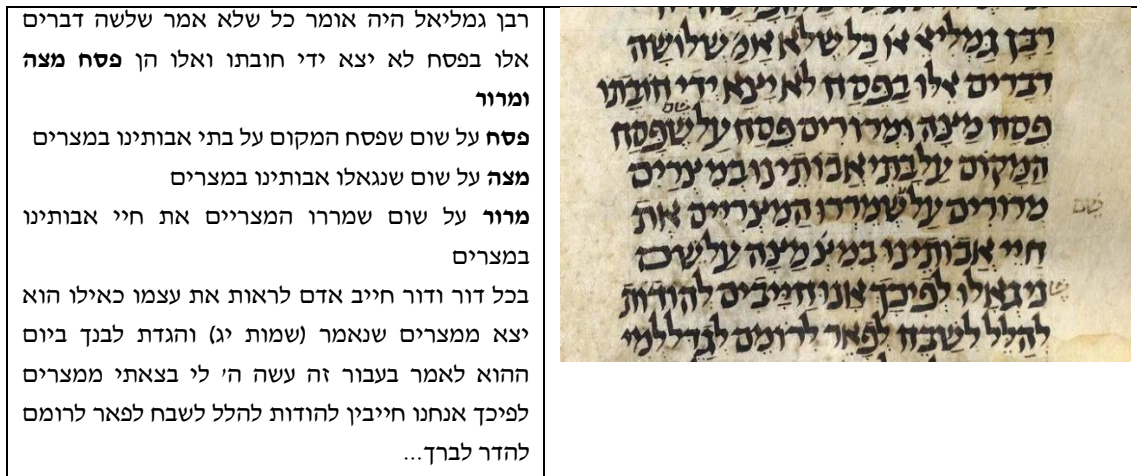 רבן גמליאל היה אומר כל שלא אמר שלשה דברים
אלו בפסח לא יצא ידי חובתו ואלו הן פסח מצה
ומרור
פסח על שום שפסח המקום על בתי אבותינו במצרים
מצה על שום שנגאלו אבותינו במצרים
מרור על שום שמררו המצריים את חיי אבותינו
במצרים
בכל דור ודור חייב אדם לראות את עצמו כאילו הוא
יצא ממצרים שנאמר (שמות יג) והגדת לבנך ביום
ההוא לאמר בעבור זה עשה ה' לי בצאתי ממצרים
לפיכך אנחנו חייבין להודות להלל לשבח לפאר לרומם
להדר לברך...
רַבָּן גַּמְלִיאֵ' אוֹ' כָּל שֶׁלֹּא אָמַ' שְׁלוֹשָׁה
דברים אילו בפסח לא יצא ידי חובתו
שם
פסח מצה ומרורים פסח על שפסח
המקום על בתי אבותינו במצרים
מרורים על שמררו המצריים את
שם
חיי אבותינו במצ' מצה על שם
ניגאלו לפיכך אנו חייבים להודות
להלל לשבח לפאר לרומם לגדל למי